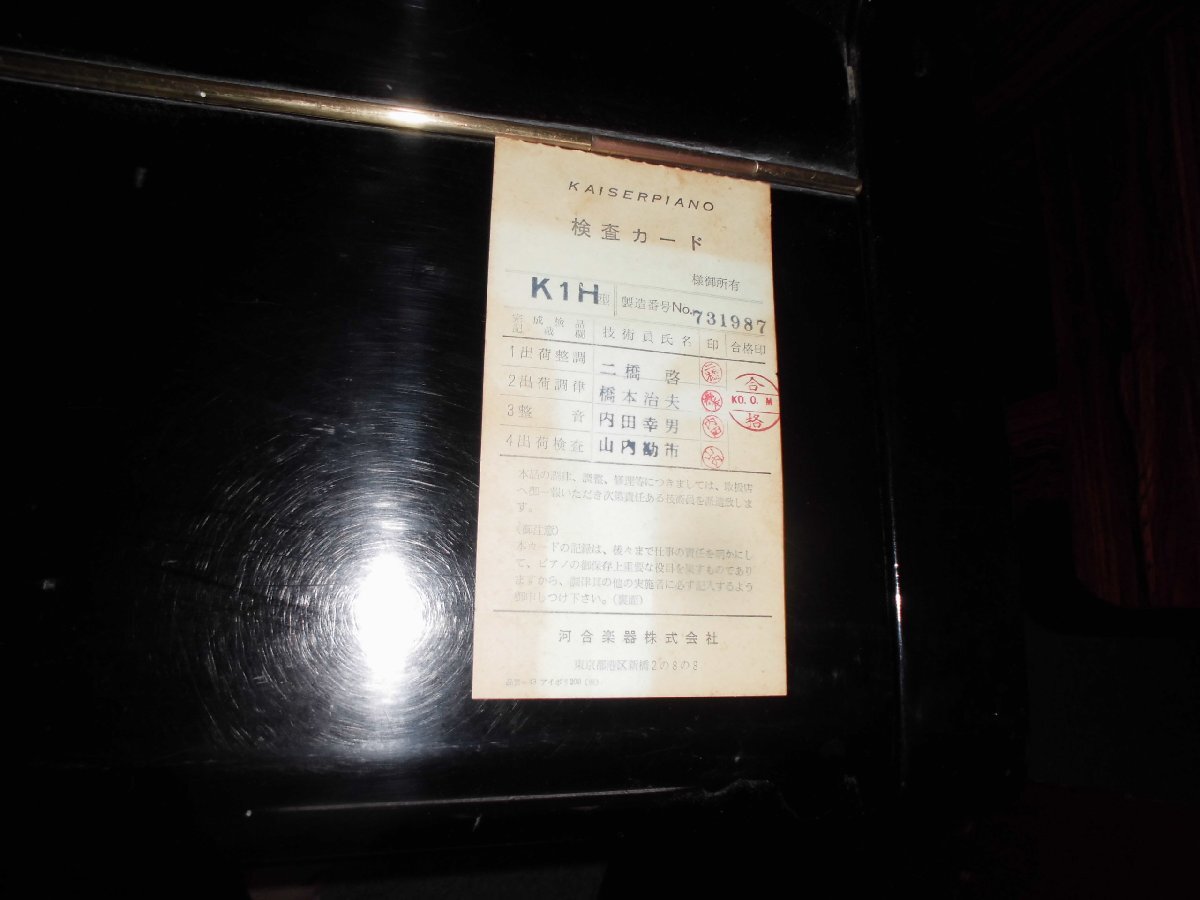 KAISERPIANO
検査カード
様御所有
K1H型 製造番号No.731987
完成検品記載欄 技術員氏名 印 合格印
1出荷整調 二橋 啓
2出荷調律 橋本治夫
3整音 内田幸男
4出荷検査 山内勘市
合格
KO. O. M
本品の調律、調整、修理等につきましては、取扱店
へ御一報いただき次第責任ある技術員を派遣致しま
す。
(御注意)
本カードの記録は、後々まで仕事の責任を明かにし
て、ピアノの御保存上重要な役目を果すものであり
ますから、調律其の他の実施者に必ず記入するよう
御申しつけ下さい。(裏面)
河合楽器株式会社
東京都港区新橋2の8の8
アイボリ200